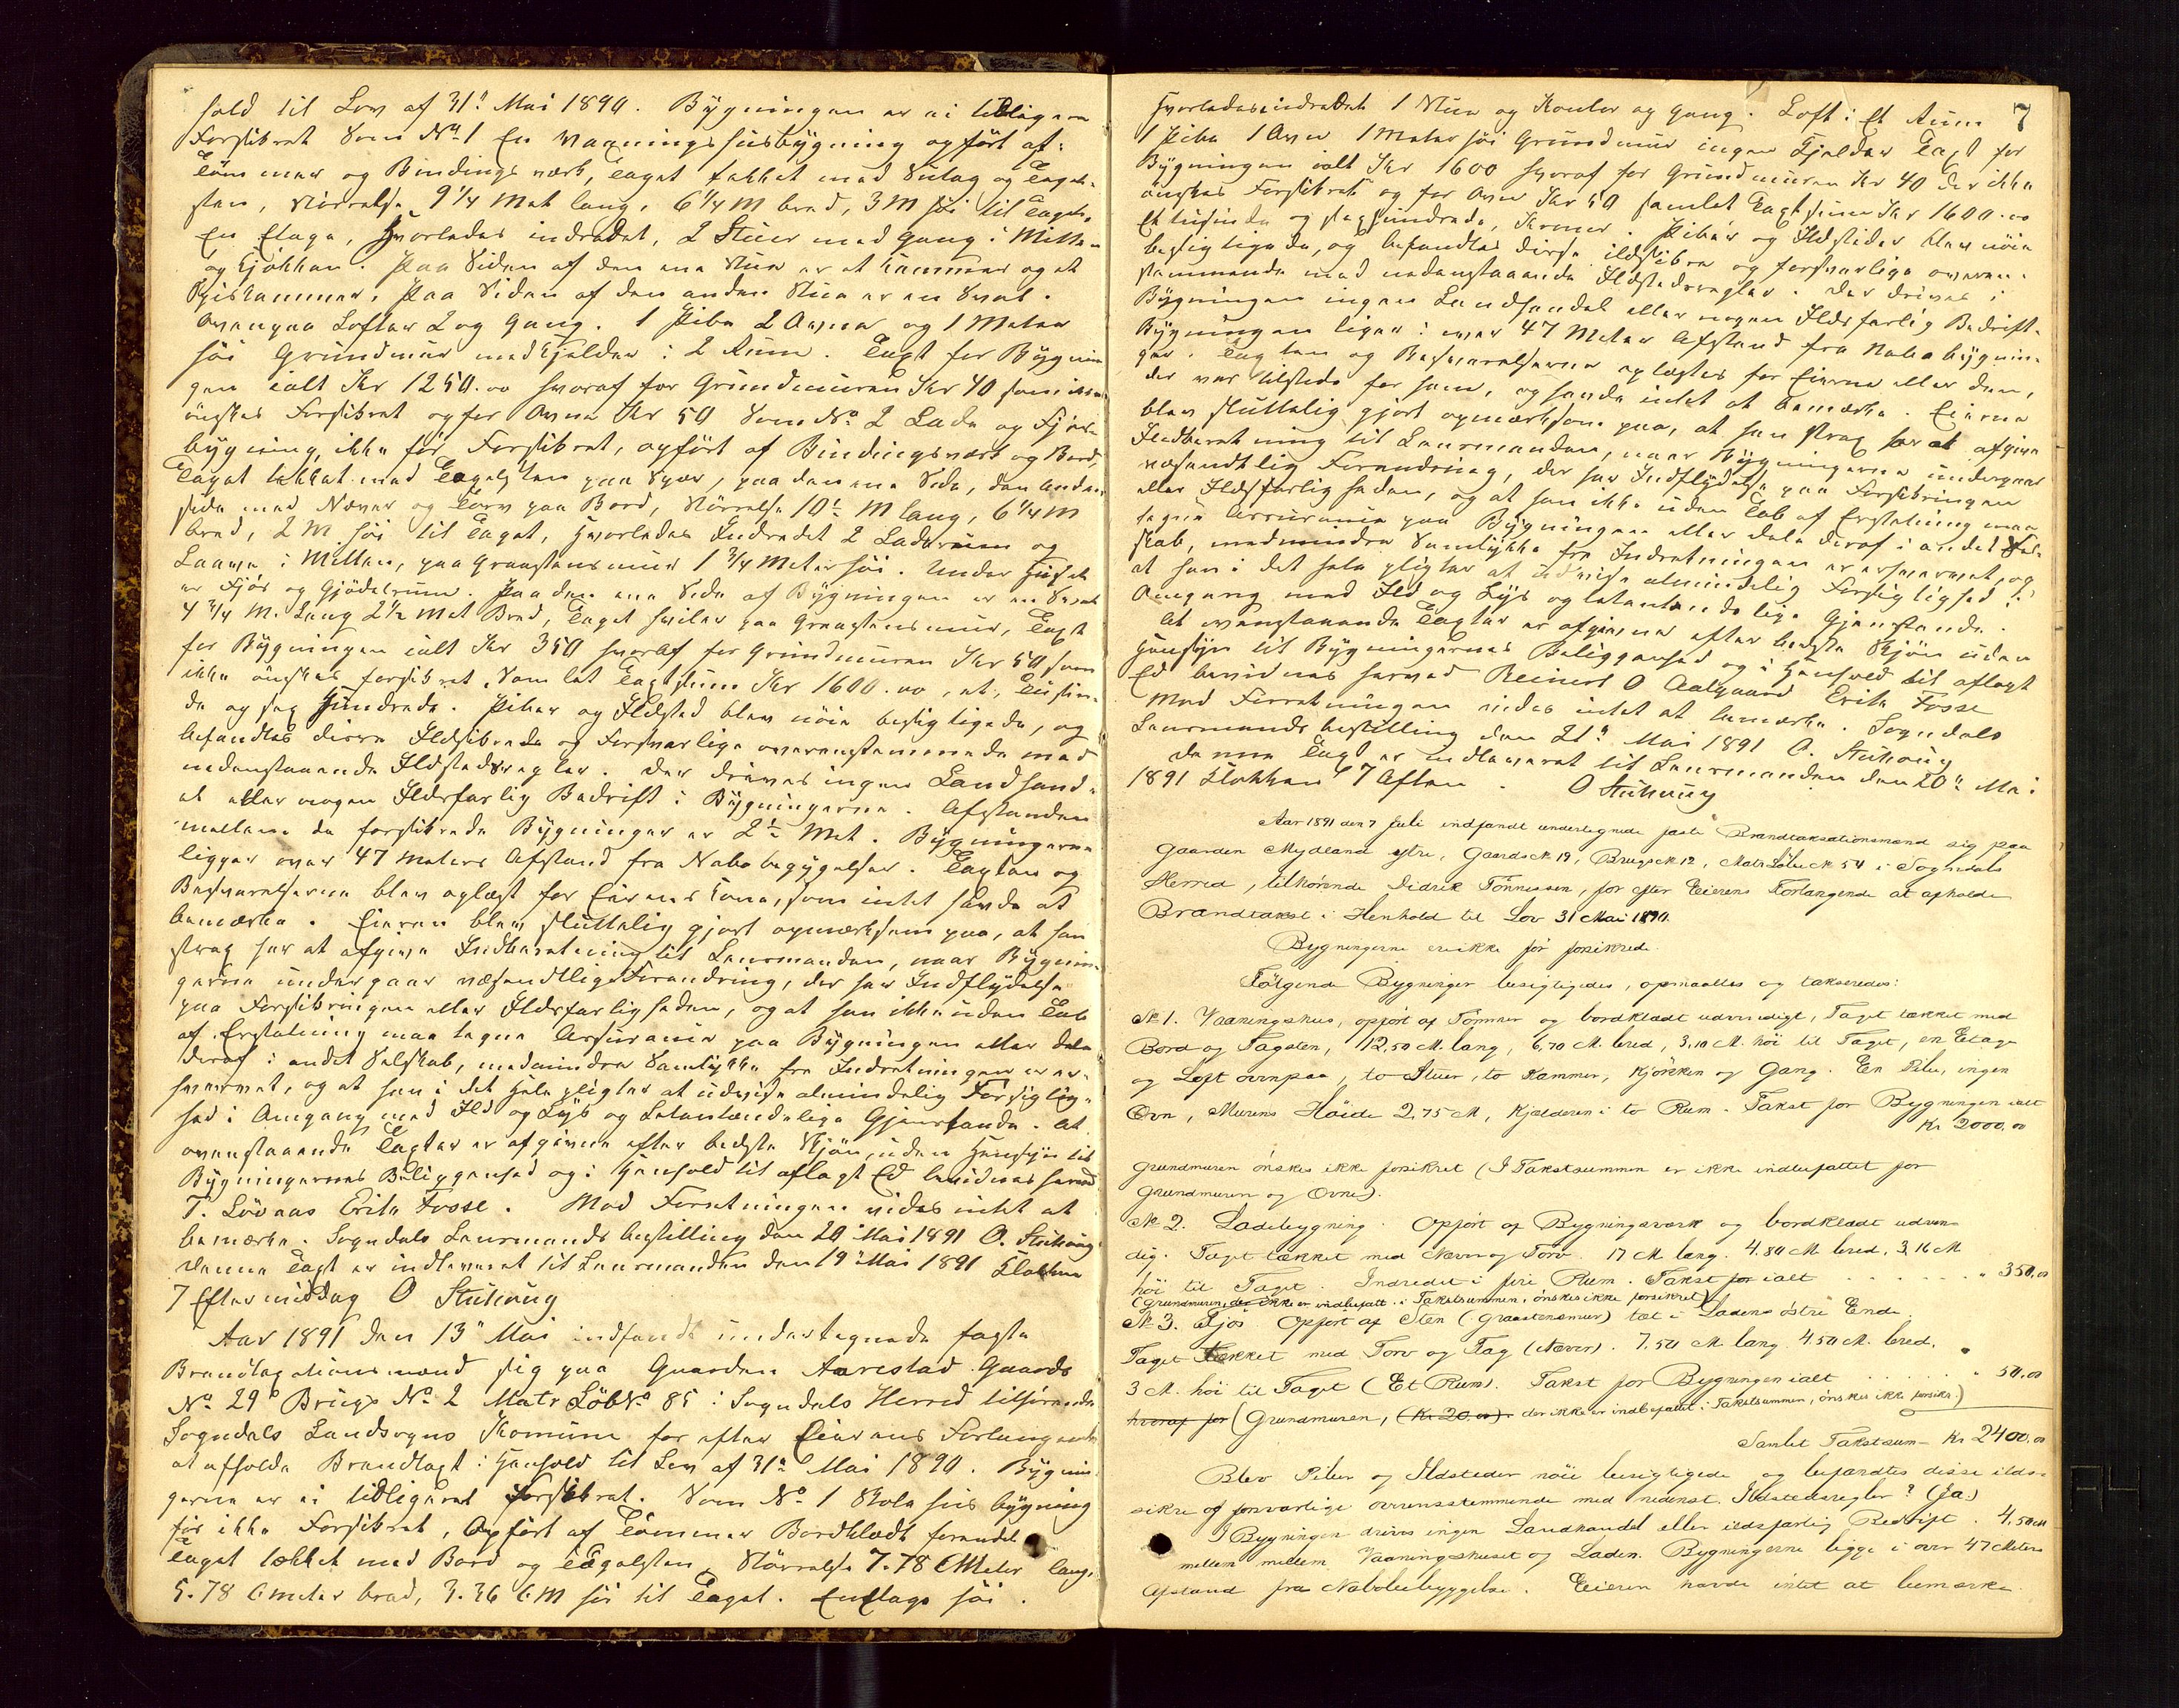 hold til Lov af 31" Mai 1890. Bygningen er ei tidligere
Forsikret Som No 1 En Vaaningshusbygning opført af
Tømmer og Bindingsværk, Taget tækket med Sutag og Tagel-
sten, Størrelse 9 1/4 Met lang, 6 1/4 M bred, 3 M høi til Taget.
En Etage, Hvorledes indredet, 2 Stuer med Gang i Mitten
og Kjøkken. Paa Siden af den ene Stue er et Kammer og et
Spiskammer, paa Siden af den anden Stue er en Sval.
Ovenpaa Lofter 2 og Gang. 1 Pibe 2 Ovner og 1 Meter
høi Grundmur med Kjelder i 2 Rum. Taxt for Bygnin
gen ialt Kr 1250.00 hvoraf for Grundmuren Kr 40 som ikke
ønskes Forsikret og for Ovne Kr 50 Som No 2 Lade og Fjøs-
bygning, ikke før Forsikret, opført af Bindingsværk og Bord,
Taget tækket med Tagelsten paa Spær, paa den ene Side, den anden
side med Næver og Torv paa Bord, Størrelse 10 1/2 M lang, 6 1/4 M
bred, 2 M høi til Taget, Hvorledes Indredet 2 Laderum og
Laave i Mitten, paa Graastensmur 1 3/4 Meter høi. Under Huset
er Fjøs og Gjødelrum. Paa den ene Side af Bygningen er en Sval
4 3/4 M. Lang 2 1/2 Met Bred, Taget hviler paa Graastensmur, Taxt
for Bygningen ialt Kr 350 hvoraf for Grundmuren Kr 50 som
ikke ønskes forsikret. Sam let Taxtsum Kr 1600.00, et, Tusin-
de og sex Hundrede. Piber og Ildsted blev nøie besigtigede, og
befandtes disse Ildsikrede og Forsvarlige overenstemmende med
nedenstaaende Ildstedsregler. Der drives ingen Landhand-
el eller nogen Ildsfarlig Bedrift i Bygningerne. Afstanden
mellem de forsikrede Bygninger er 2 1/2 Met. Bygningerne
ligger over 47 Meters Afstand fra Nabobebyggelser. Taxten og
Besvarelserne blev oplæst for Eierens Kone, som intet havde at
bemærke. Eieren blev sluttelig gjort opmærksom paa, at han
strax har at afgive Indberetning til Lensmanden, naar Bygnin-
gerne undergaar væsendtlig Forandring, der har Indflydelse
paa Forsikringen eller Ildsfarligheden, og at han ikke uden Tab
af Erstatning maa tegne Assurance paa Bygningen eller dele
deraf i andet Selskab, medmindre Samtykke fra Indretningen er er-
hvervet, og at han i det Hele pligter at udvise almindelig Forsiglig-
hed i Omgang med Ild og Lys og Letantændelige Gjenstande. At
ovenstaaende Taxter er afgivne efter bedste Skjøn, uden Hensyn til
Bygningernes Beliggenhed og i Henhold til aflagt Ed bevidnes herved
T. Løvaas Erik Fosse. Mod Forretningen vides intet at
bemærke. Sogndals Lensmands bestilling den 20 Mai 1891 O. Stuhaug
Denne Taxt er indleveret til Lensmanden den 19" Mai 1891 Klokken
7 Eftermiddag O Stuhaug
Aar 1891 den 13" Mai indfandt undertegnede faste
Brandtaxationsmænd sig paa Gaarden Aarestad Gaards
No 29 Brugs No 2 Matr LøbNo 85 i Sogndals Herred tilhørende
Sogndals Landsogns Komune for efter Eierens Forlangende
at afholde Brandtaxt i Henhold til Lov af 31te Mai 1890. Bygnin-
gerne er ei tidligere Forsikret. Som No 1 Skole hus bygning
før ikke Forsikret, Opført af Tømmer Bordklædt
Taget tækket med Bord og Tagelsten, Størrelse 7.78 CMeter lang,
5.78 Cmeter bred, 3.36 C.M høi til Taget. En Etage høi.
7
Hvorledes indredet 1 Stue og Kontor og Gang. Loft i Et Rum
1 Pibe 1 Ovn 1 Meter høi Grundmur ingen Kjelder Taxt for
Bygningen ialt Kr 1600 hvoraf for Grundmuren Kr 40 der ikke
ønskes Forsikret og for Ovne Kr 50 samlet Taxtsum Kr 1600.00
Et tusinde og sexhundrede, Kroner. Piber og Ildsteder blev nøie
besigtigede, og befandtes disse ildsikre og forsvarlige overen-
stemmende med nedenstaaende Ildstedsregler. Der drives i
Bygningen ingen Landhandel eller nogen Ildsfarlig Bedrift.
Bygningen ligger i over 47 Meter Afstand fra Nabobygnin-
ger. Taxten og Besvarelserne oplæstes for Eierne eller den,
der var tilstede for ham, og havde intet at bemærke. Eierne
blev sluttelig gjort opmærksom paa, at han strax har at afgive
Indberetning til Lensmanden, naar Bygningerne undergaar
væsendtlig Forandring, der har Indflydelse paa Forsikringen
eller Ildsfarligheden, og at han ikke uden Tab af Erstatning maa
tegne Assurance paa Bygningen eller dele deraf i andet Sel-
skab, medmindre Samtykke fra Indretningen er erhvervet, og
at han i det hele pligter at udvise almindelig Forsiglighed i
Omgang med Ild og Lys og letantændelige Gjenstande.
At ovenstaaende Taxter er afgivne efter bedste Skjøn uden
Hensyn til Bygningernes Beliggenhed og i Henhold til aflagt
Ed bevidnes herved Reinert O Aalgaard Erik Fosse
Mod Forretningen vides intet at bemærke. Sogndals
Lensmands bestilling den 21" Mai 1891 O. Stuhaug
Denne Taxt er indleveret til Lensmanden den 20" Mai
1891 Klokken 7 Aften. O Stuhaug
Aar 1891 den 7 Juli indfandt undertegnede faste Brandtaksationsmænd sig paa
Gaarden Mydland ytre, Gaards No 19, Brugs No 12, Matr Løbe No 54 i Sogndals
Herred, tilhørende Didrik Tönnessen, for efter Eierens Forlangende at afholde
Brandtakst i Henhold til Lov 31 Mai 1890.
Bygningerne er ikke før forsikrede.
Følgende Bygninger besigtigedes, opmaaltes og takseredes:
No 1. Vaaningshus, opført af Tømmer og bordklædt udvendigt, Taget tækket med
Bord og Tagsten, 12,50 M. lang, 6,70 M. bred, 3,10 M. høi til Taget, en Etage
og Loft ovenpaa, to Stuer, to Kammer, Kjøkken og Gang. En Pibe, ingen
Ovn, Murens Høide 2,75 M, Kjælderen i to Rum. Takst for Bygningen ialt
Kr 2000,00
Grundmuren ønskes ikke forsikret (I Takstsummen er ikke indbefattet for
Grundmuren og Ovne).
No 2. Ladebygning. Opført af Bygningsværk og bordklædt udven-
dig. Taget tækket med Næver og Torv. 17 M lang. 4.80 M bred, 3,16 M
høi til Taget. Indredet i fire Rum. Takst for ialt . . . . . . . " 350,00
(Grundmuren, der ikke er indbefatt. i Takstsummen, ønskes ikke forsikret)
No 3. Fjøs Opført af Sten (Graastensmur) tæt i Ladens østre Ende
Taget tækket med Torv og Tag (Næver). 7.50 M. lang 4.50 M. bred.
3 M. høi til Taget (Et Rum). Takst for Bygningen ialt . . . . . . " 50,00
hvoraf for (Grundmuren, (Kr 20.00) der ikke er indbefattet i Takstsummen, ønskes ikke forsikr.)
Samlet Takstsum Kr 2400,00
Blev Piber og Ildsteder nøie besigtigede og befandtes disse ild-
sikre og forsvarlige overensstemmende med nedenst. Ildstedsregler? (Ja.)
I Bygningen drives ingen Landhandel eller ildsfarlig Bedrift. 4,50 M
mellem mellem Vaaningshuset og Laden. Bygningerne ligge i over 47 Meters
Afstand fra Nabobebyggelse. Eieren havde intet at bemærke